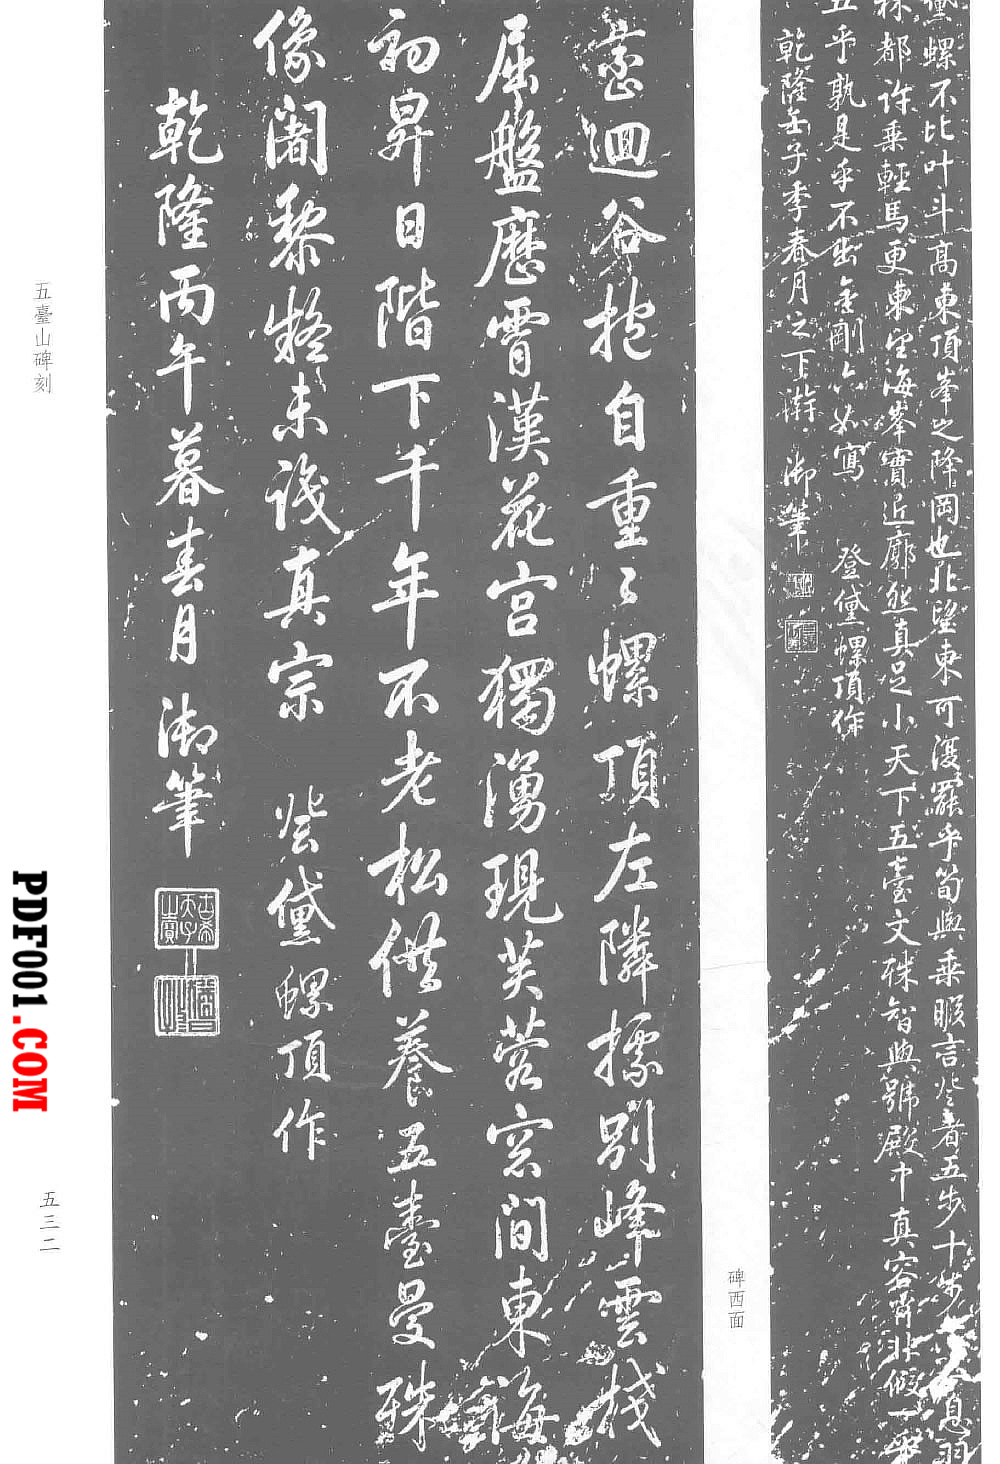 黛螺不比叶斗高東頂峯之降岡也北望東可復羅乎筍輿乘暇言登者五步十步息羽
林都許乗輕馬更東望海峯實近廓然真是小天下五臺文殊智與號殿中真容霄非假一乘
五乎孰是乎不出金剛六如寫 登黛螺頂作
乾隆壬子季春月之下澣 御筆
碑西面
巒迴谷抱自重々螺頂左隣據別峰雲棧
屈盤歷霄漢花宮獨湧現芙蓉窓間東海
初昇日階下千年不老松供養五臺曼殊
像闍黎疑未識真宗 登黛螺頂作
乾隆丙午暮春月 御筆
古希天子
五臺山碑刻
五三二
PDF001.COM